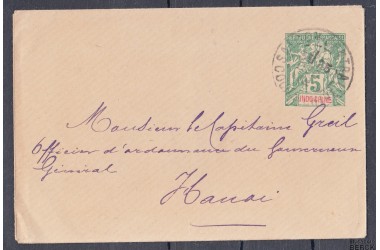 5
INDO-CHINE
Monsieur le Capitaine Greil
Officier d'ordonnance du Gouverneur
Général
Hanoi